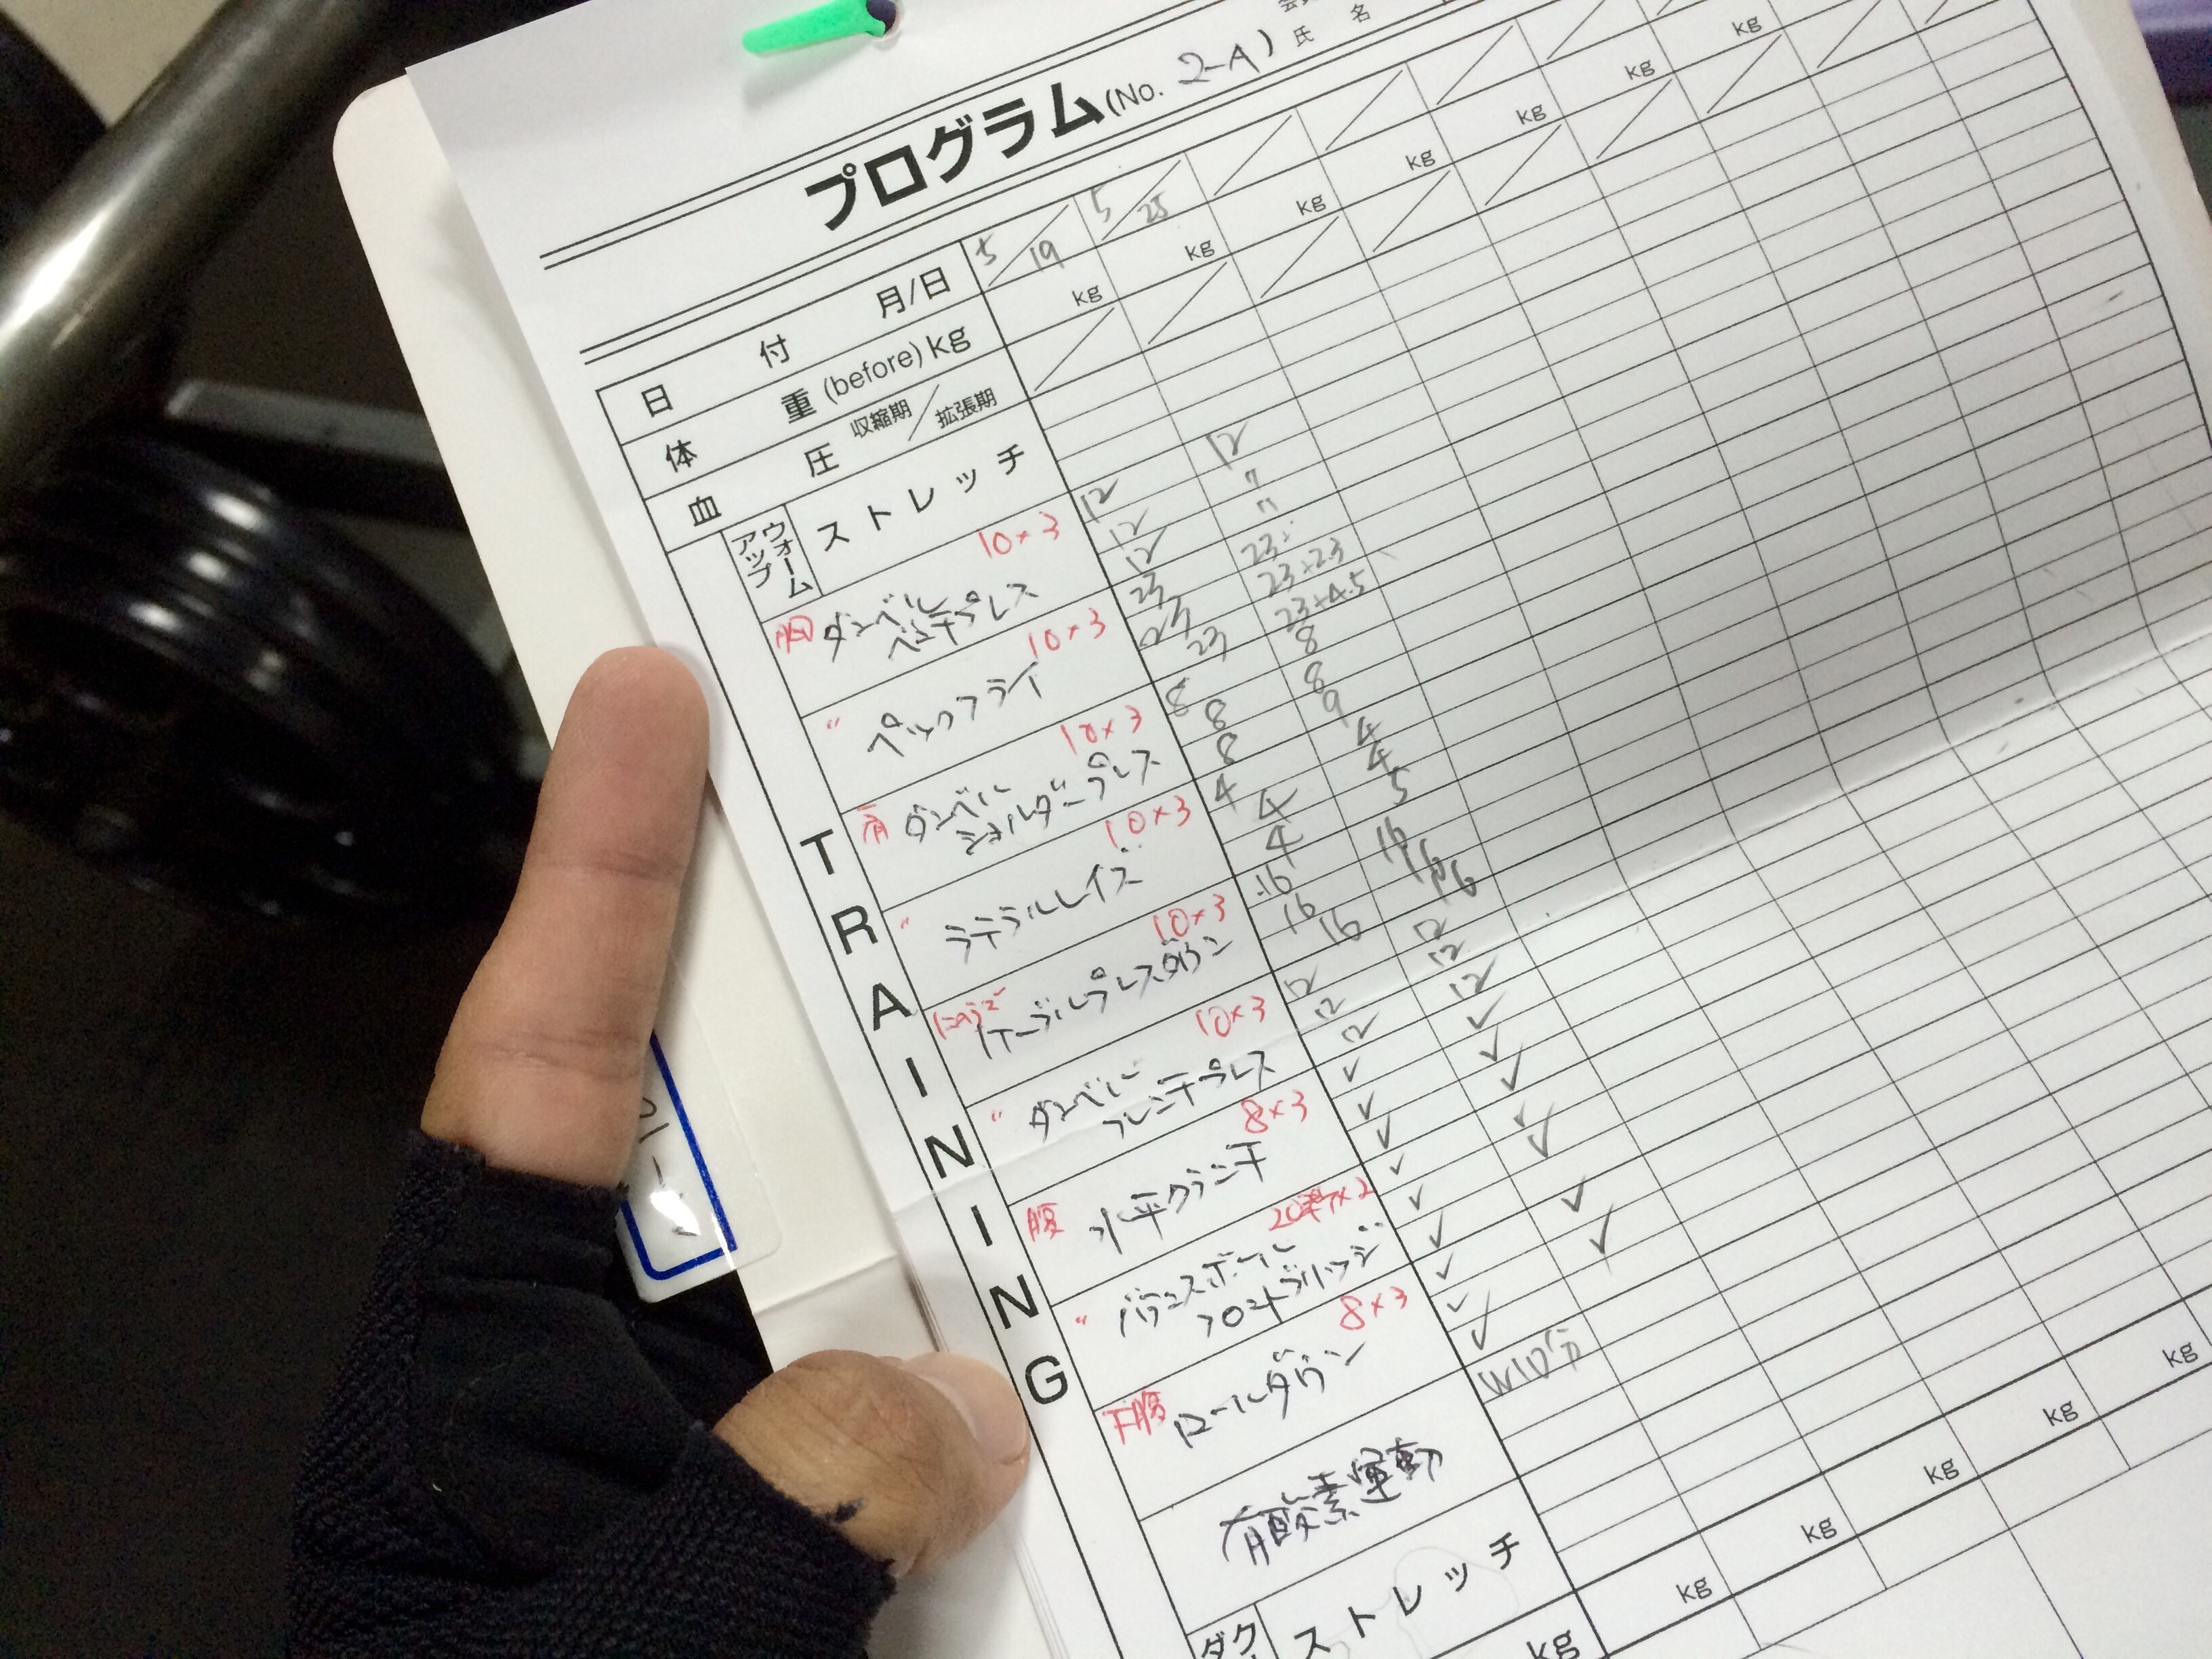 プログラム(No. 2-A)
氏 名
日 付 月/日 5/19 5/25
体 重 (before) kg kg kg kg kg kg kg kg
血 圧 収縮期/拡張期
ウォームアップ ストレッチ
TRAINING
胸 ダンベルベンチプレス 10×3
12 12
12 〃
12 〃
〃 ペックフライ 10×3
23 23
23 23+2.3
23 23+4.5
肩 ダンベルショルダープレス 10×3
8 8
8 8
8 9
〃 ラテラルレイズ 10×3
4 4
4 4
4 5
ケーブルプレスダウン 10×3
16 16
16 16
16 16
〃 ダンベルフレンチプレス 10×3
12 12
12 12
12 12
腹 水平クランチ 8×3
✓ ✓
✓ ✓
✓ ✓
〃 バランスボールフロントブリッジ 20秒×2
✓ ✓
✓ ✓
✓
下腹 ロールダウン 8×3
✓ ✓
✓ ✓
✓
有酸素運動
W10分
ストレッチ
kg kg kg kg kg kg